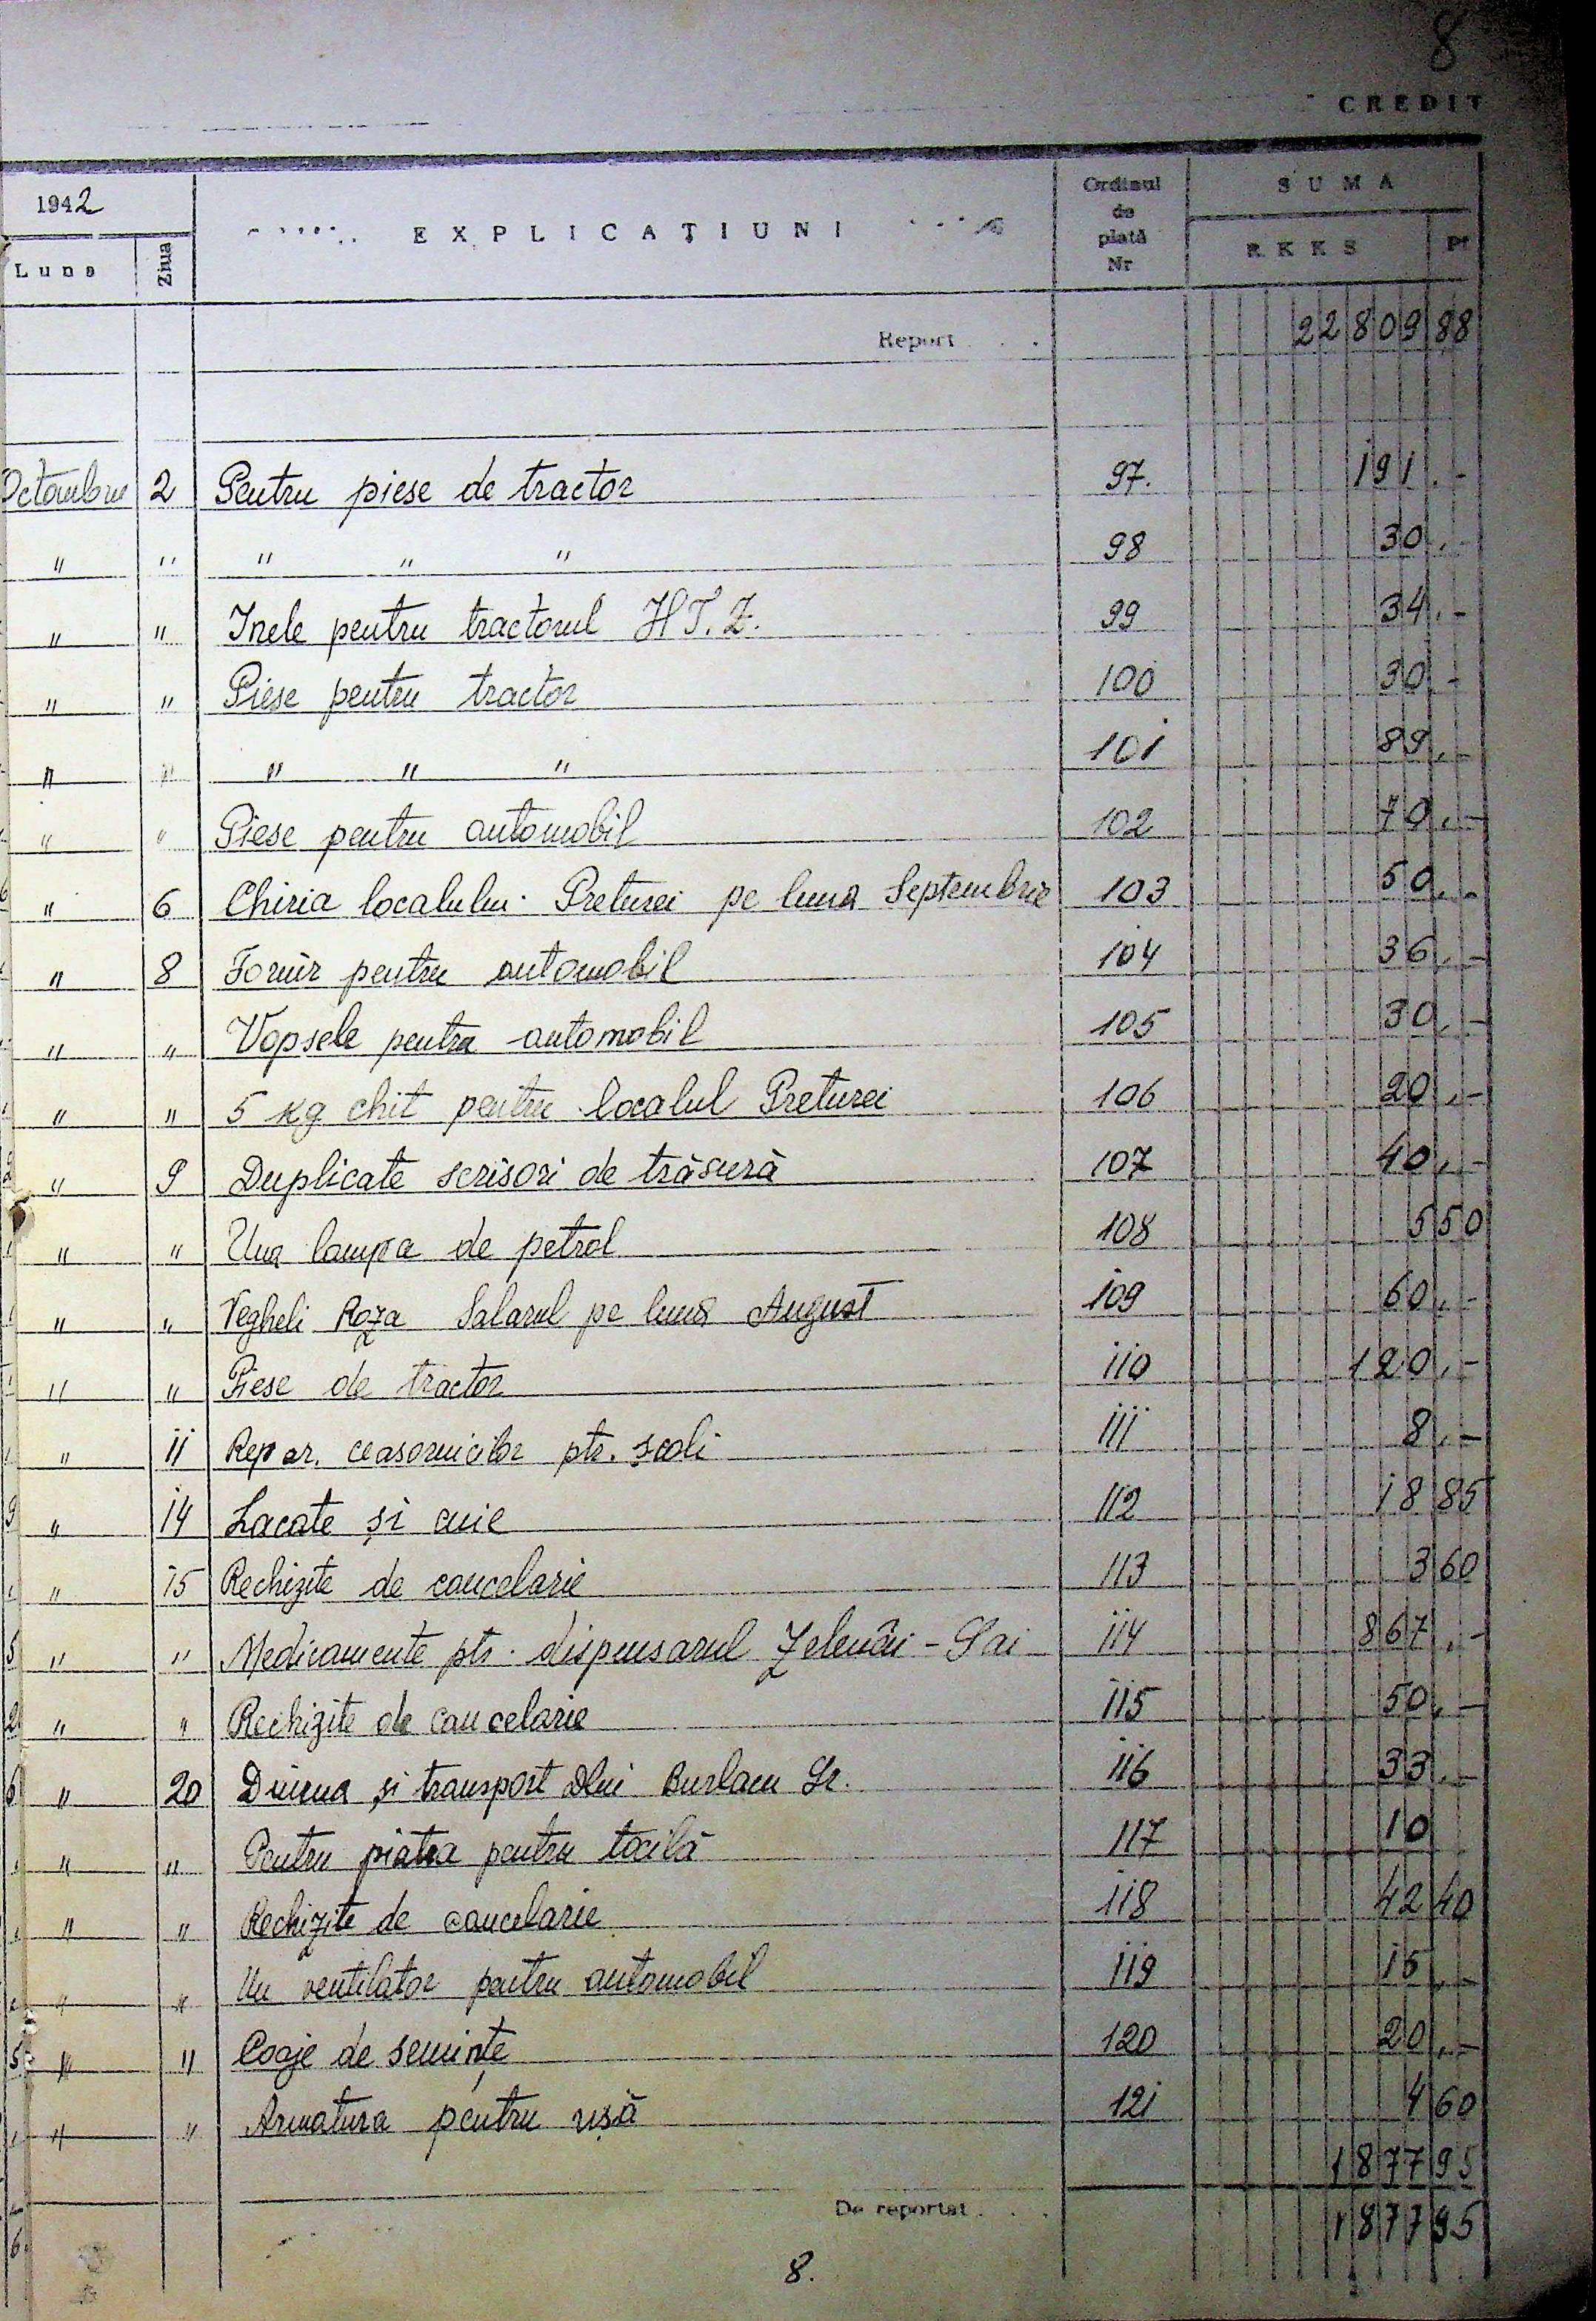 8
CREDIT
1942 EXPLICAȚIUNI Ordinul de plată Nr SUMA
Luna Ziua RKKS Pf
Report . . . 22809 88
Octombrie 2 Pentru piese de tractor 97. 191.-
" " " " " 98 30.-
" " Inele pentru tractorul H T. Z. 99 34.-
" " Piese pentru tractor 100 30.-
" " " " " 101 89,-
" " Piese pentru automobil 102 70,-
" 6 Chiria localului Preturei pe luna Septembrie 103 50,-
" 8 Fornir pentru automobil 104 36,-
" " Vopsele pentru automobil 105 30,-
" " 5 kg chit pentru localul Preturei 106 20,-
" 9 Duplicate scrisori de trăsură 107 40,-
" " Una lampa de petrol 108 5 50
" " Vegheli Roza Salarul pe luna August 109 60,-
" " Piese de tractor 110 120,-
" 11 Repar. ceasornicilor ptr. școli 111 8,-
" 14 Lacate și cuie 112 18 85
" 15 Rechizite de cancelarie 113 3 60
" " Medicamente ptr. dispensarul - Gai 114 867,-
" " Rechizite de cancelarie 115 50,-
" 20 Diurna și transport Dlui Burlacu Gr. 116 33,-
" " Pentru piatra pentru tocilă 117 10
" " Rechizite de cancelarie 118 42 40
" " Un ventilator pentru automobil 119 15,-
" " Coaje de semințe 120 20,-
" " Armatura pentru ușă 121 4 60
1877 95
De reportat . . . 1877 95
8.